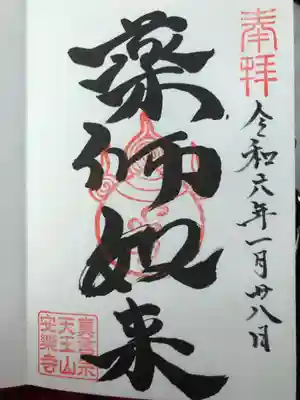 奉拝
令和六年一月廿八日
薬师如来
真言宗
天王山
安樂寺